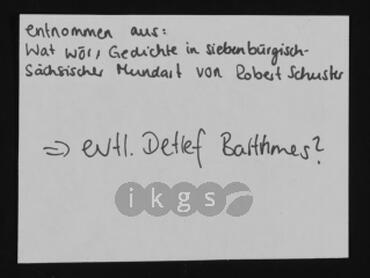 entnommen aus:
Wat wōr, Gedichte in siebenbürgisch-
Sächsischer Mundart von Robert Schuster
=> evtl. Detlef Barthmes?
ikgs